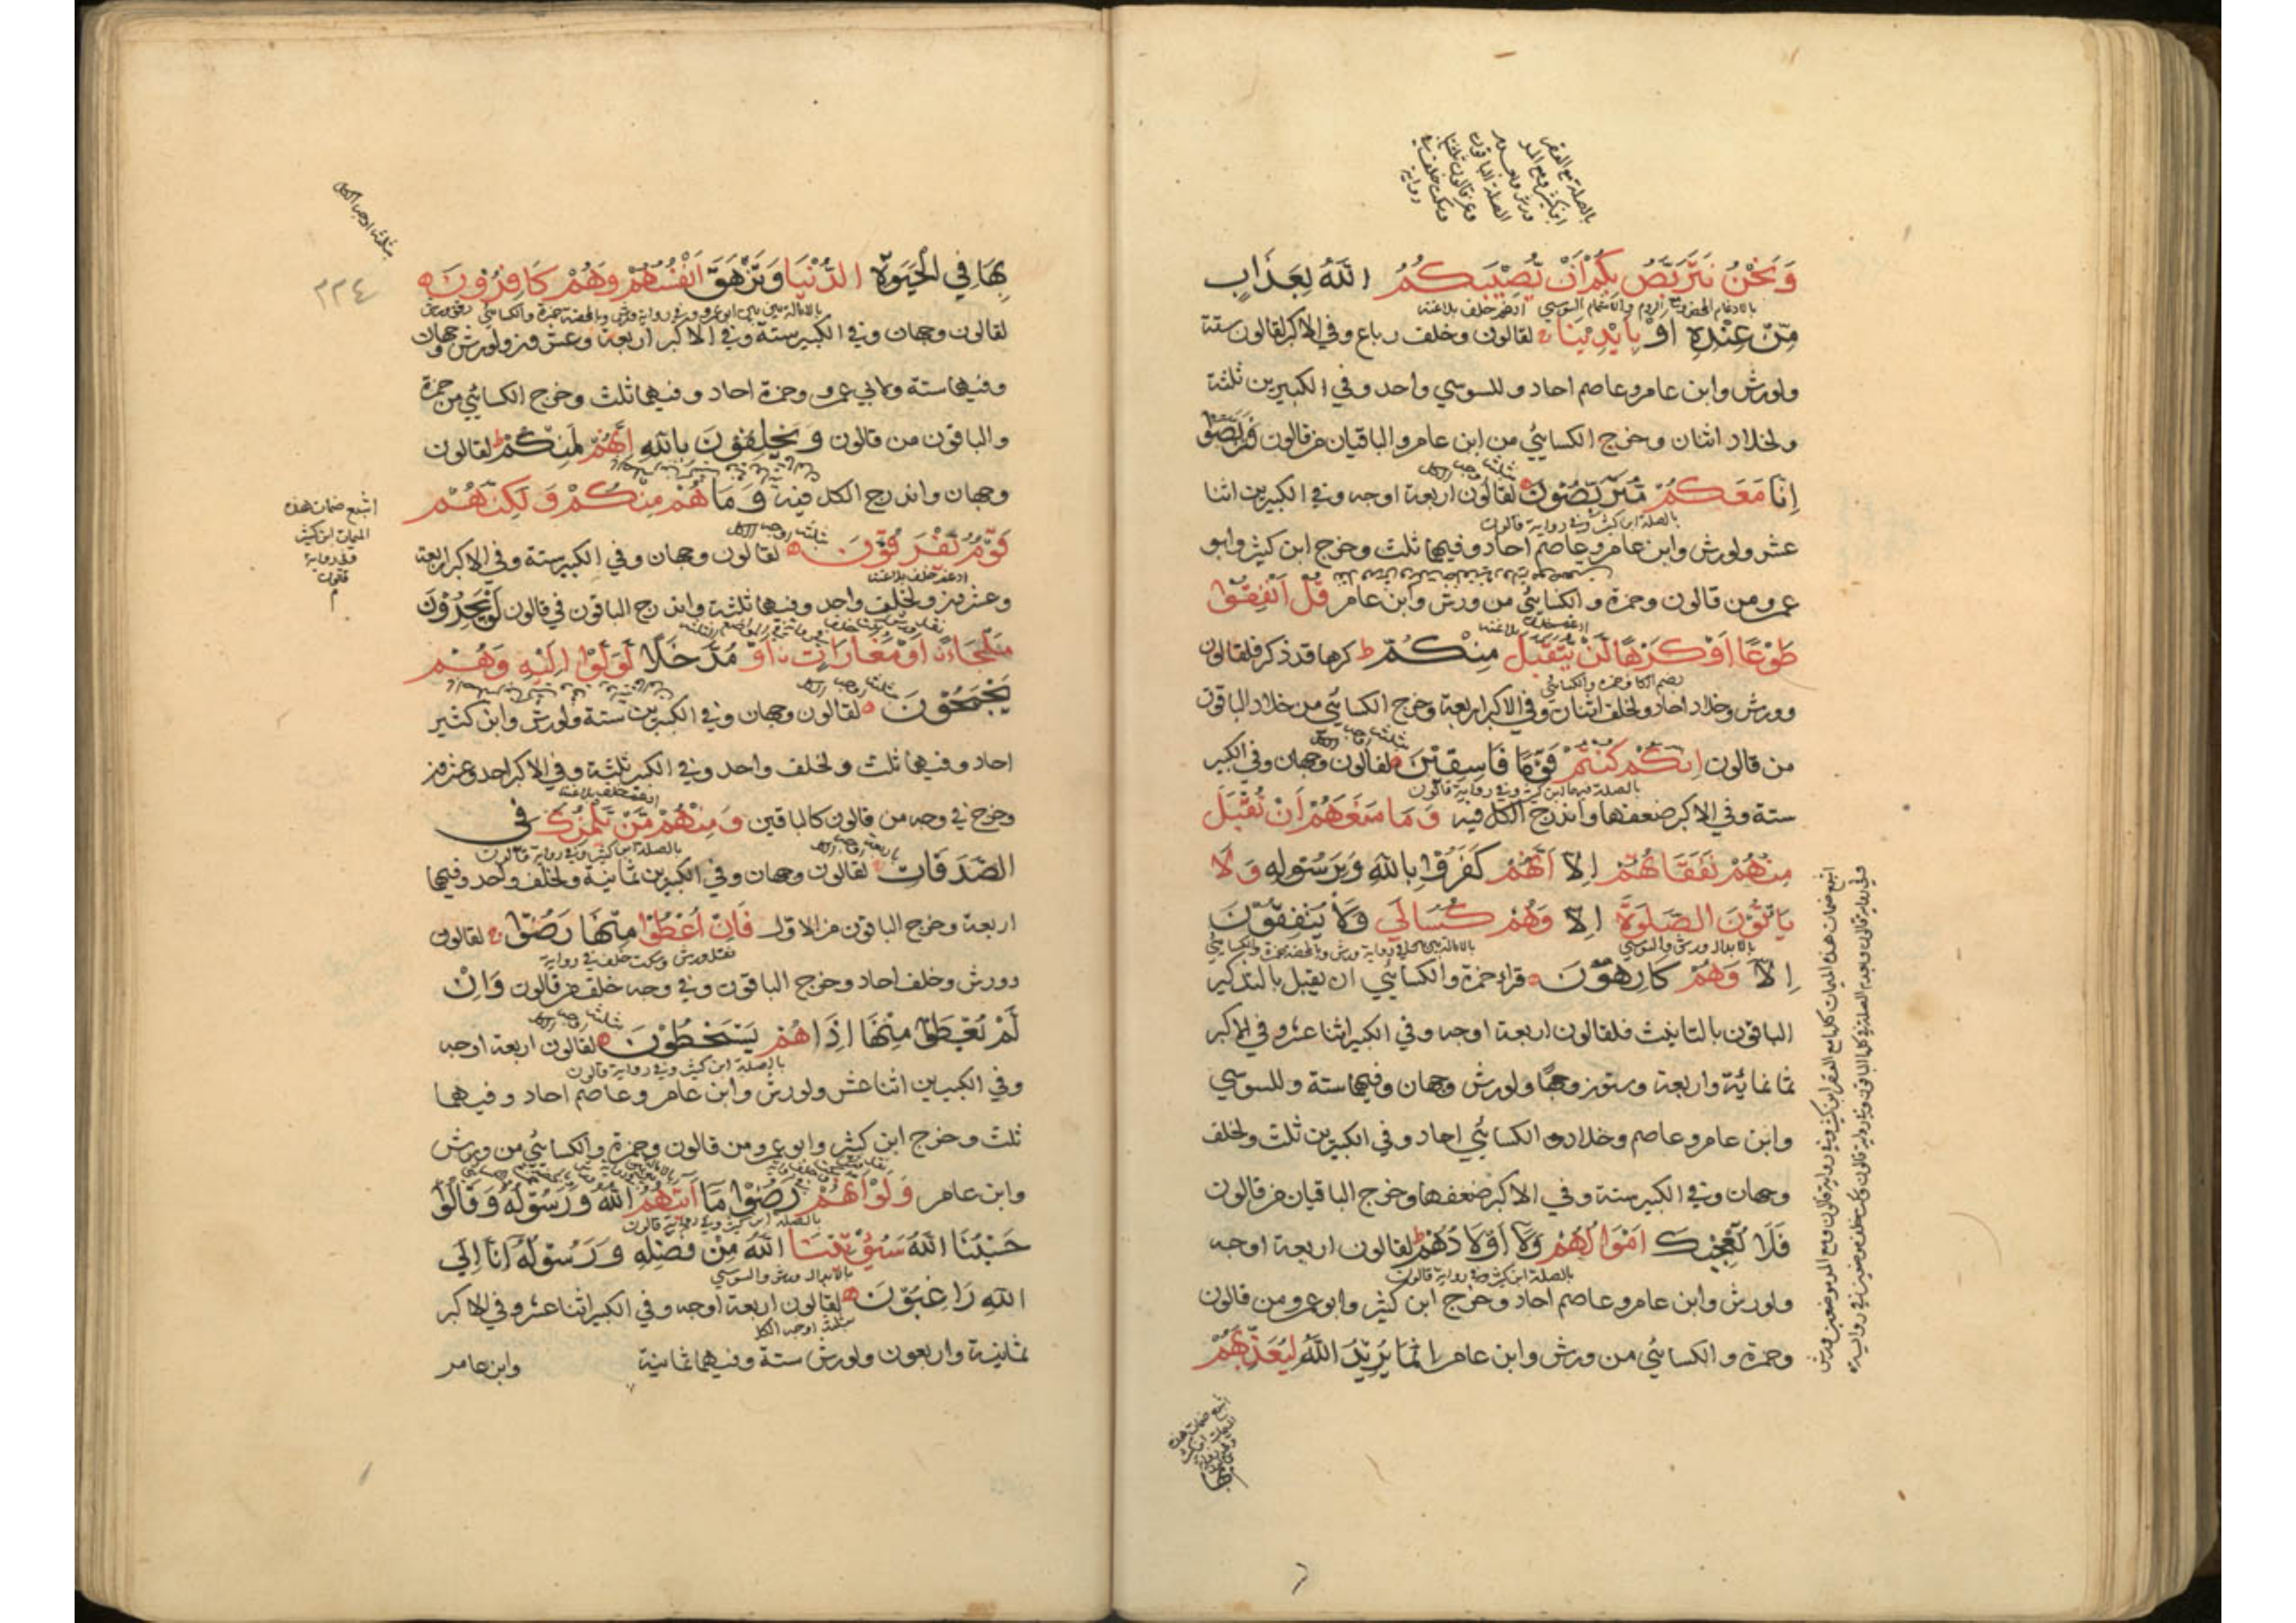 وَنَحْنُ نَتَرَبَّصُ بِكُمْ اَنْ يُصِيْبَكُمُ اللّٰهُ بِعَذَابٍ
بالادغام المحض ومع الروم والاشمام السوسي ادغم خلف بلاغنة
مِنْ عِنْدِهِ اَوْ بِاَيْدِيْنَا لقالون وخلف رباع وفي الاكبر لقالون ستة
ولورش وابن عامر وعاصم احاد وللسوسي واحد وفي الكبيرين ثلثة
ولخلاد اثنان وخرج الكسائي من ابن عامر والباقيان من قالون فَتَرَبَّصُوْا
اِنَّا مَعَكُمْ مُتَرَبِّصُوْنَ لقالون اربعة اوجه وفي الكبيرين اثنا
بالصلة ابن كثير وفي رواية قالون
عشر ولورش وابن عامر وعاصم احاد وفيهما ثلث وخرج ابن كثير وابو
عمرو من قالون وحمزة والكسائي من ورش وابن عامر قُلْ اَنْفِقُوْا
ادغم خلف بلاغنة
طَوْعًا اَوْ كَرْهًا لَنْ يُتَقَبَّلَ مِنْكُمْ كرها قد ذكر فلقالون
بضم الكاف حمزة والكسائي
وورش وخلاد احاد ولخلف اثنان وفي الاكبر اربعة وخرج الكسائي من خلاد الباقون
من قالون اِنَّكُمْ كُنْتُمْ قَوْمًا فَاسِقِيْنَ لقالون وجهان وفي الكبير
بالصلة فيهما ابن كثير وفي رواية قالون
ستة وفي الاكبر ضعفها واندرج الكل فيه وَمَا مَنَعَهُمْ اَنْ تُقْبَلَ
مِنْهُمْ نَفَقَاتُهُمْ اِلَّا اَنَّهُمْ كَفَرُوْا بِاللّٰهِ وَبِرَسُوْلِهِ وَلَا
يَاْتُوْنَ الصَّلٰوةَ اِلَّا وَهُمْ كُسَالٰي وَلَا يُنْفِقُوْنَ
بالابدال ورش والسوسي
اِلَّا وَهُمْ كَارِهُوْنَ قراء حمزة والكسائي ان يقبل بالتذكير
الباقون بالتانيث فلقالون اربعة اوجه وفي الكبير اثنا عشر وفي الاكبر
ثمانمائة واربعة وستون وجها ولورش وجهان وفيهما ستة وللسوسي
وابن عامر وعاصم وخلاد والكسائي احاد وفي الكبيرين ثلث ولخلف
وجهان وفي الكبير ستة وفي الاكبر ضعفها وخرج الباقيان من قالون
فَلَا تُعْجِبْكَ اَمْوَالُهُمْ وَلَا اَوْلَادُهُمْ لقالون اربعة اوجه
بالصلة ابن كثير وفي رواية قالون
ولورش وابن عامر وعاصم احاد وخرج ابن كثير وابو عمرو من قالون
وحمزة والكسائي من ورش وابن عامر اِنَّمَا يُرِيْدُ اللّٰهُ لِيُعَذِّبَهُمْ
بِهَا فِي الْحَيٰوةِ الدُّنْيَا وَتَزْهَقَ اَنْفُسُهُمْ وَهُمْ كَافِرُوْنَ
٢٢٤
لقالون وجهان وفي الكبير ستة وفي الاكبر اربعة وعشرون ولورش وجهان
وفيهما ستة ولابي عمرو وحمزة احاد وفيهما ثلث وخرج الكسائي من حمزة
والباقون من قالون وَيَحْلِفُوْنَ بِاللّٰهِ اِنَّهُمْ لَمِنْكُمْ لقالون
وجهان واندرج الكل فيه وَمَا هُمْ مِنْكُمْ وَلٰكِنَّهُمْ
اشبع ضمات هذه
الميمات ابن كثير
وفي رواية
قالون
قَوْمٌ يَفْرَقُوْنَ لقالون وجهان وفي الكبير ستة وفي الاكبر اربعة
ادغم خلف بلاغنة
وعشرون ولخلف واحد وفيهما ثلثة واندرج الباقون في قالون لَوْ يَجِدُوْنَ
مَلْجَاءً اَوْ مَغَارَاتٍ اَوْ مُدَّخَلًا لَوَلَّوْا اِلَيْهِ وَهُمْ
يَجْمَحُوْنَ لقالون وجهان وفي الكبيرين ستة ولورش وابن كثير
احاد وفيهما ثلث ولخلف واحد وفي الكبير ثلثة وفي الاكبر احد وعشرون
ادغم خلف بلاغنة
وخرج في وجه من قالون كالباقين وَمِنْهُمْ مَنْ يَلْمِزُكَ فِي
بالصلة ابن كثير وفي رواية قالون
الصَّدَقَاتِ لقالون وجهان وفي الكبيرين ثمانية ولخلف واحد وفيهما
اربعة وخرج الباقون من الاول فَاِنْ اُعْطُوْا مِنْهَا رَضُوْا لقالون
نقل ورش وسكت خلف في رواية
وورش وخلف احاد وخرج الباقون وفي وجه خلف من قالون وَاِنْ
لَمْ يُعْطَوْا مِنْهَا اِذَا هُمْ يَسْخَطُوْنَ لقالون اربعة اوجه
بالصلة ابن كثير وفي رواية قالون
وفي الكبيرين اثنا عشر ولورش وابن عامر وعاصم احاد وفيهما
ثلث وخرج ابن كثير وابو عمرو من قالون وحمزة والكسائي من ورش
وابن عامر وَلَوْ اَنَّهُمْ رَضُوْا مَا اٰتٰهُمُ اللّٰهُ وَرَسُوْلُهُ وَقَالُوْا
بالصلة ابن كثير وفي رواية قالون
حَسْبُنَا اللّٰهُ سَيُؤْتِيْنَا اللّٰهُ مِنْ فَضْلِهِ وَرَسُوْلُهُ اِنَّا اِلَي
بالابدال ورش والسوسي
اللّٰهِ رَاغِبُوْنَ لقالون اربعة اوجه وفي الكبير اثنا عشر وفي الاكبر
بثلثة اوجه الكل
ثمانية واربعون ولورش ستة وفيهما ثمانية وابن عامر